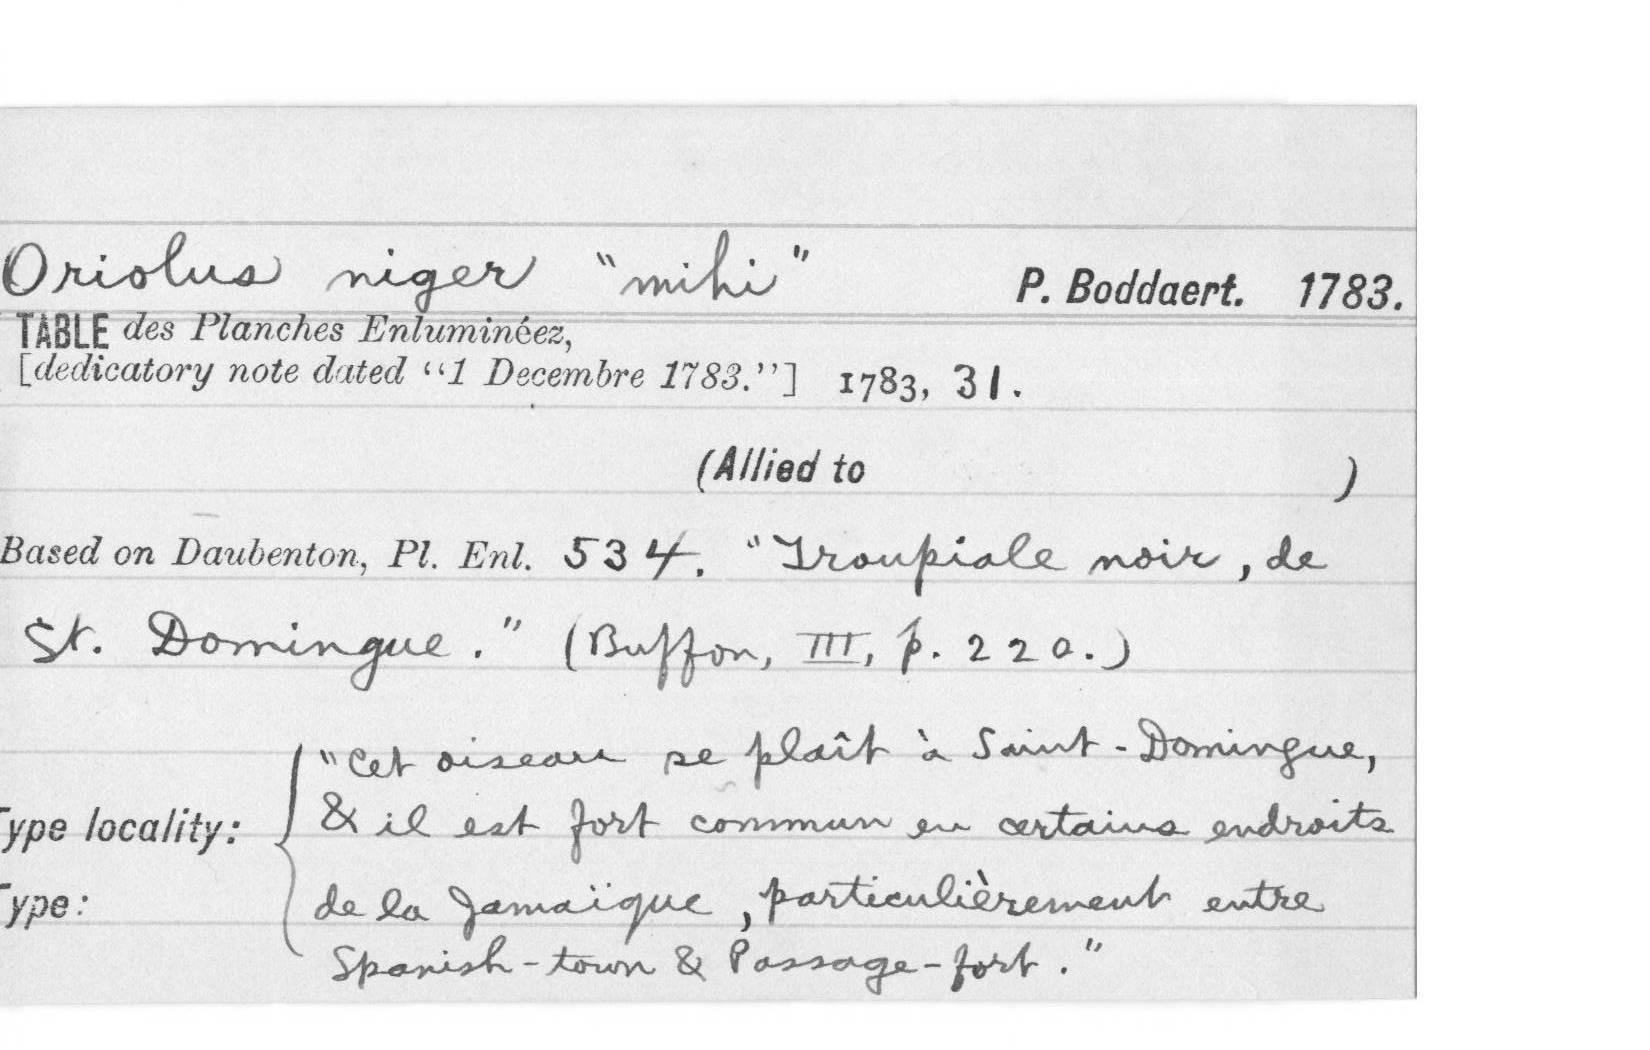 Oriolus niger "mihi" P. Boddaert. 1783.
TABLE des Planches Enluminéez,
[dedicatory note dated "1 Decembre 1783."] 1783, 31.
(Allied to )
Based on Daubenton, Pl. Enl. 534. "Troupiale noir, de
St. Domingue." (Buffon, III, p. 220.)
"Cet oiseau se plaît à Saint-Domingue,
Type locality: & il est fort commun en certains endroits
Type: de la Jamaïque, particulièrement entre
Spanish-town & Passage-fort."